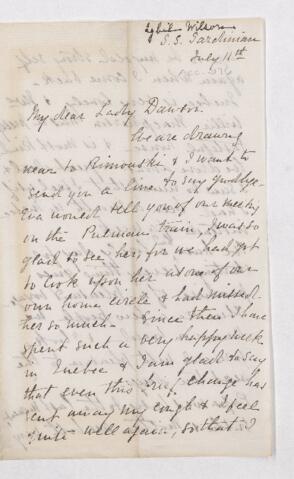 Sybil Wilson
S.S. Sardinian
July 11th
My dear Lady Dawson.
We are drawing
near to Rimouski & I want to
send you a line to say goodbye.
Eva would tell you of our meeting
in the Pulman train, I was so
glad to see her, for we had got
to look upon her as one of our
own home circle & had missed
her so much. Since then I have
spent such a very happy week
in Quebec & I am glad to say
that even this brief change has
sent away my cough & I feel
quite well again, so that I